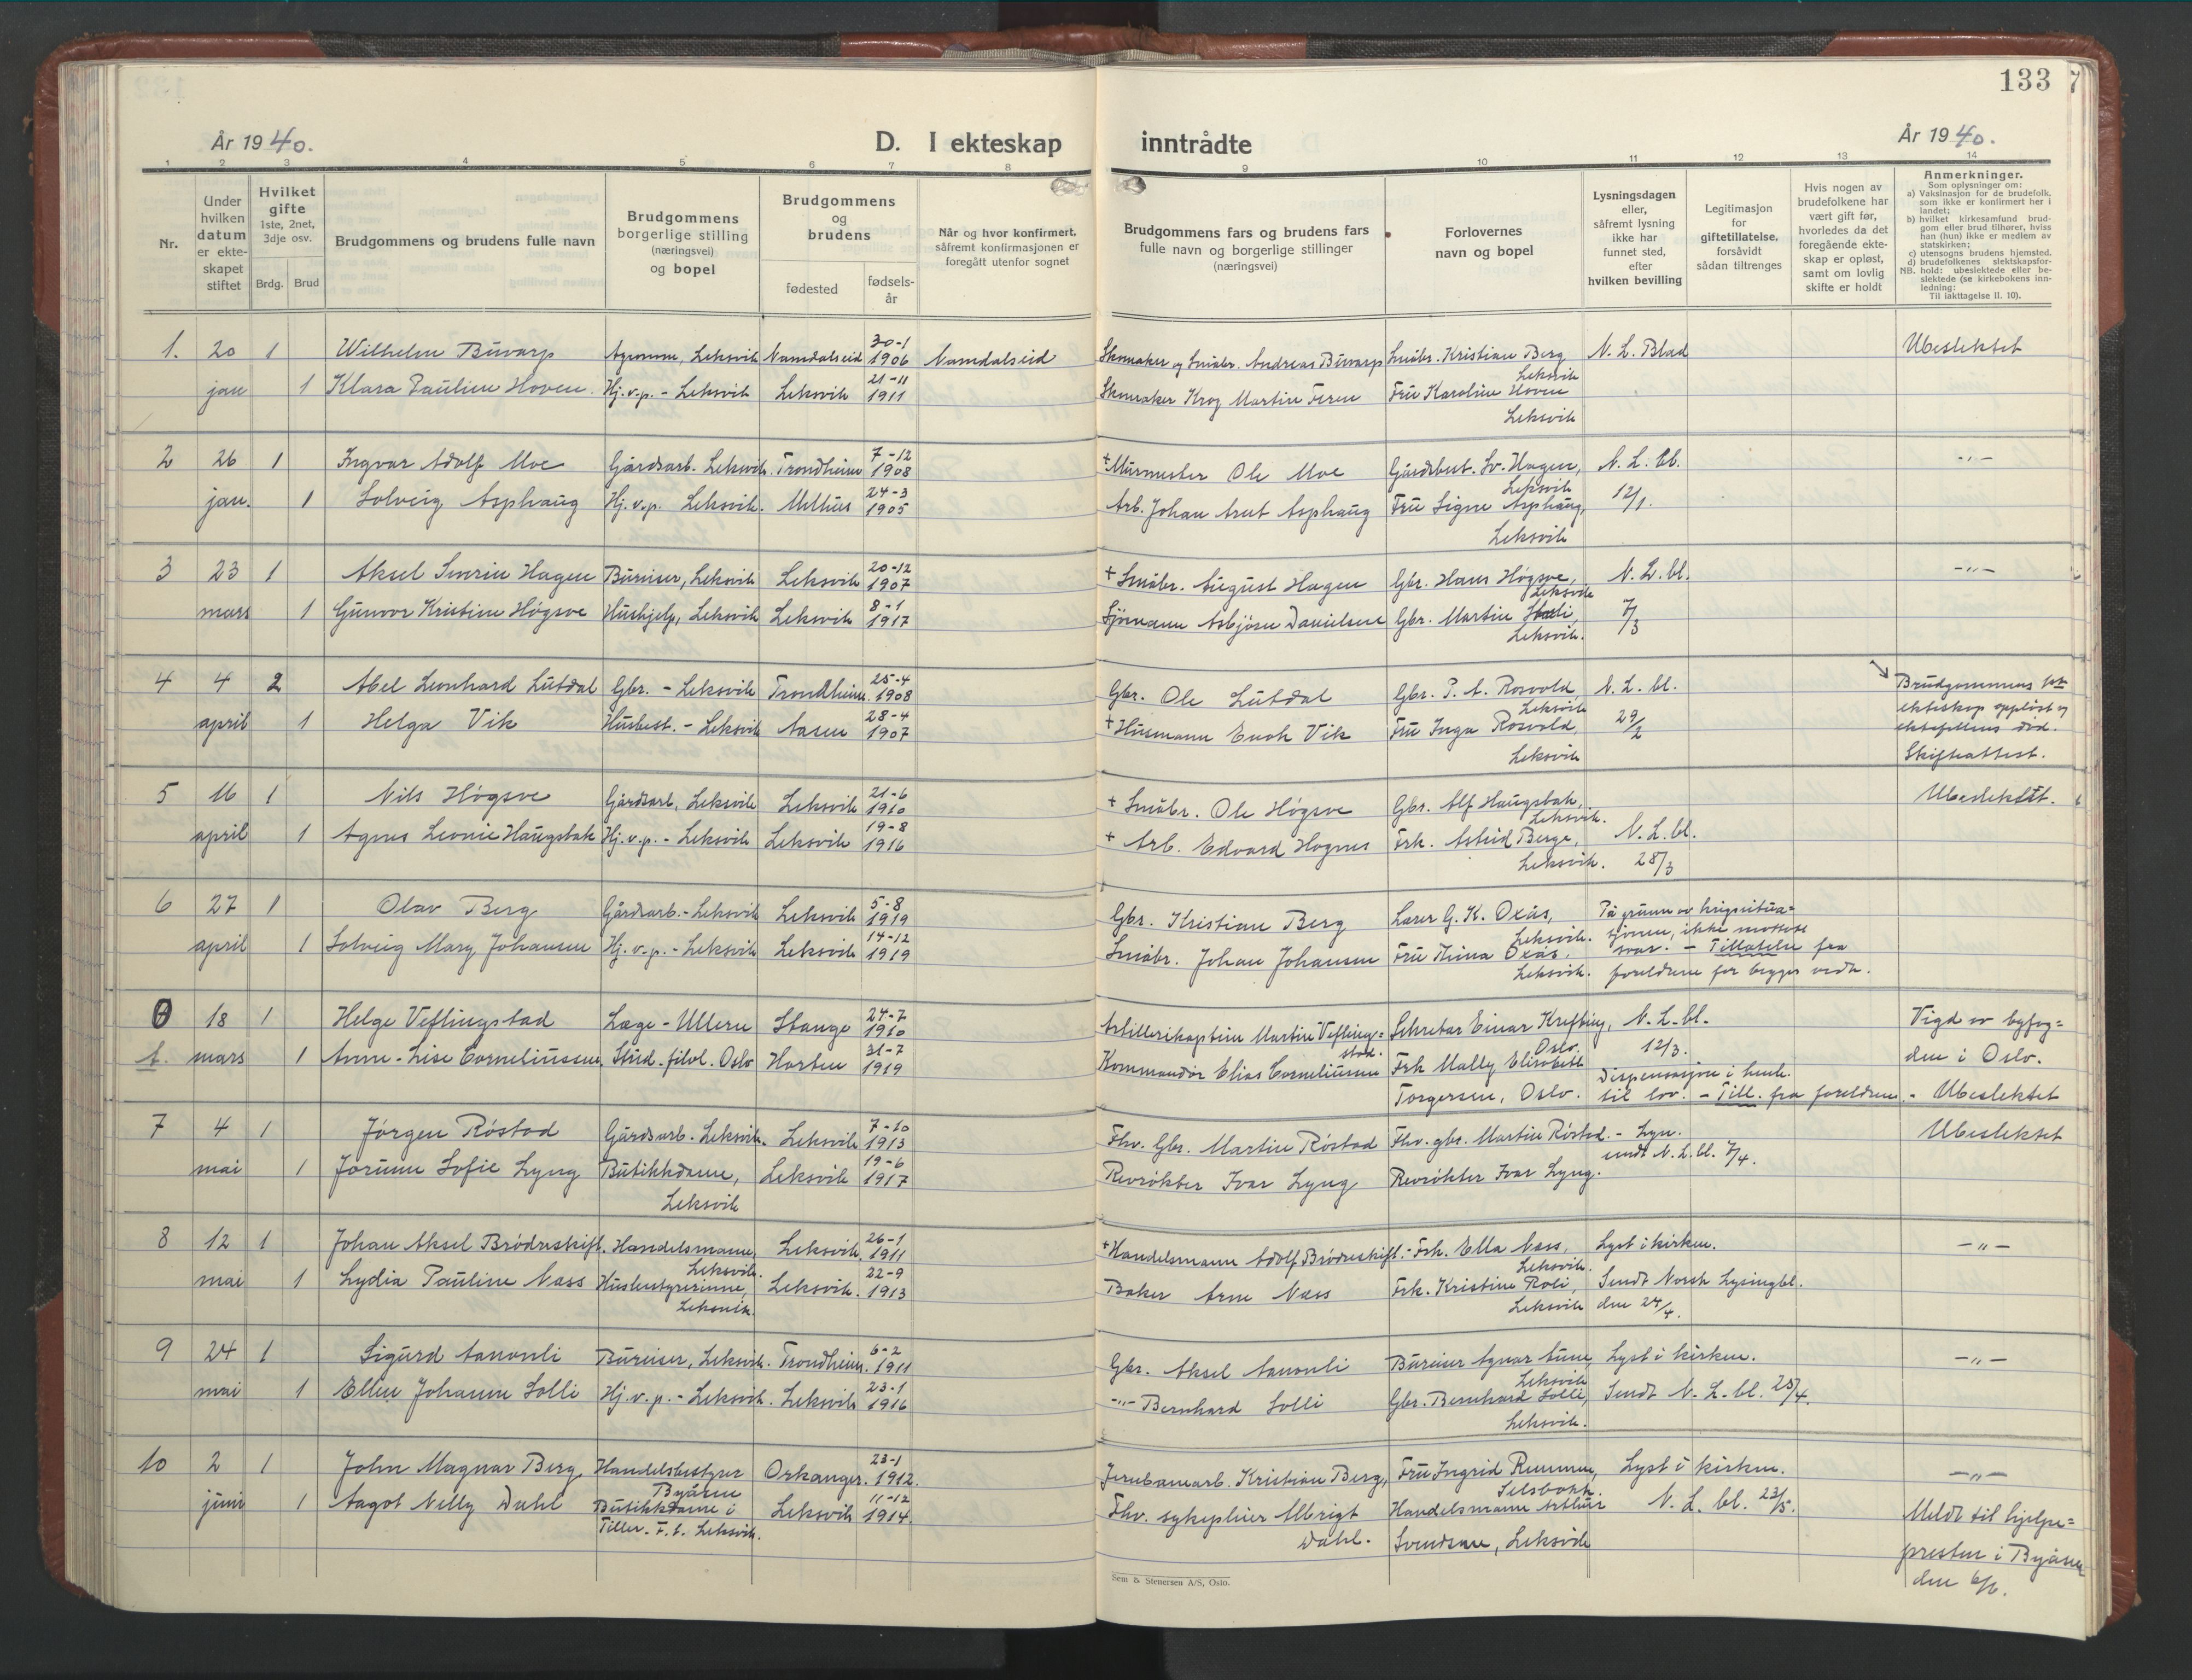 133
År 1940.
D. I ekteskap inntrådte
År 1940.
1 2 3 4 5 6 7 8 9 10 11 12 13 14
Nr.
Under hvilken datum er ekteskapet stiftet
Hvilket gifte
1ste, 2net, 3dje osv.
Brdg. Brud
Brudgommens og brudens fulle navn
Brudgommens borgerlige stilling (næringsvei) og bopel
Brudgommens og brudens
fødested
fødsels-år
Når og hvor konfirmert, såfremt konfirmasjonen er foregått utenfor sognet
Brudgommens fars og brudens fars fulle navn og borgerlige stillinger (næringsvei)
Forlovernes navn og bopel
Lysningsdagen eller, såfremt lysning ikke har funnet sted, efter hvilken bevilling
Legitimasjon for giftetillatelse, forsåvidt sådan tiltrenges
Hvis nogen av brudefolkene har vært gift før, hvorledes da det foregående ekteskap er opløst, samt om lovlig skifte er holdt
Anmerkninger.
Som oplysninger om:
a) Vaksinasjon for de brudefolk, som ikke er konfirmert her i landet;
b) hvilket kirkesamfund brudgom eller brud tilhører, hviss han (hun) ikke er medlem av statskirken;
c) utensogns brudens hjemsted.
d) brudefolkenes slektskapsforhold: ubeslektede eller beslektede (se kirkebokens innledning:
NB. Til iakttagelse II. 10).
1. 20 1 Wilhelm Buvarp Agronom, Leksvik Namdalseid 30-1 1906 Namdalseid Skomaker og Småbr. Andreas Buvarp Småbr. Kristian Berg Leksvik N. L. Blad Ubeslektet
jan 1 Klara Pauline Hoven Hj.v.p. - Leksvik Leksvik 21-11 1911 Skomaker Krog Martin Feren Fru Karoline Hoven Leksvik
2 26 1 Ingvar Adolf Moe Gårdsarb. Leksvik. Trondheim 7-12 1908 +Murmester Ole Moe Gårdbest. Sv. Hagen, Leksvik N. L. bl. -"-
jan. 1 Solveig Asphaug Hj.v.p. Leksvik. Melhus 24-3 1905 Arb. Johan Arnt Asphaug Fru Signe Asphaug, Leksvik 12/1.
3 23 1 Aksel Sverin Hagen Bureiser, Leksvik Leksvik 20-12 1907 + Småbr. August Hagen Gbr. Hans Høgsve, Leksvik N. L. bl. -"-
mars 1 Gunvor Kristine Høgsve Hushjelp, Leksvik Leksvik 8-1 1917 Sjømann Asbjørn Danielsen Gbr. Martin Leksvik. 7/3
4 4 2 Abel Leonhard Lutdal Gbr. - Leksvik Trondheim. 25-4 1908 Gbr. Ole Lutdal Gbr. P. A. Rosvold Leksvik N. L. bl. Brudgommens 1ste ekteskap oppløst v ektefellens død. Skifteattest.
april 1 Helga Vik Husbest. - Leksvik Aasen 28-4 1907 +Husmann Enok Vik Fru Inga Rosvold, Leksvik 29/2
5 16 1 Nils Høgsve Gårdsarb, Leksvik Leksvik 21-6 1910 + Småbr. Ole Høgsve Gbr. Alf Haugsbak, Leksvik. Ubeslektet.
april 1 Agnes Leonie Haugsbak Hj.v.p. - Leksvik Leksvik 19-8 1916 + Arb. Edvard Hognes Frk. Astrid Berge, Leksvik. N. L. bl. 28/3
6 27 1 Olav Berg Gårdsarb. - Leksvik Leksvik 5-8 1919 Gbr. Kristian Berg Lærer G. K. Oxås, Leksvik. På grunn av krigssituasjonen, ikke mottatt svar. - Tillatelse fra foreldrene for begges vedk.
april 1 Solveig Mary Johansen Hj.v.p. - Leksvik Leksvik 14-12 1919 Småbr. Johan Johansen Fru Oxås, Leksvik.
18 1 Helge Veflingstad Læge - Ullern Stange 24-7 1910 Artillerikaptein Martin Veflingstad. Sekretær Einar Krefting, Oslo. N. L. bl. 12/3. Vigd av byfogden i Oslo.
mars 1 Anne-Lise Corneliussen Stud. filol. Oslo Horten 31-7 1919 Kommandør Elias Corneliussen Frk Mally Elisabeth Torgersen, Oslo. Dispensasjon i henh. til lov. - Till. fra foreldrene. - Ubeslektet
7 4 1 Jørgen Røstad Gårdsarb. Leksvik. Leksvik 7-10 1913 Fhv. Gbr. Martin Røstad Fhv. gbr. Martin Røstad. - Lyn. sendt N. L. bl. 7/4. Ubeslektet
mai 1 Jorunn Sofie Lyng Butikkdame, Leksvik Leksvik 19-6 1917 Revrøkter Ivar Lyng Revrøkter Ivar Lyng.
8 12 1 Johan Aksel Brødreskift. Handelsmann, Leksvik. Leksvik. 26-1 1911 +Handelsmann Adolf Brødreskift. - Frk. Ella Næss, Leksvik. Lyst i kirken. -"-
mai 1 Lydia Pauline Næss Husbestyrerinne, Leksvik. Leksvik. 22-9 1913 Baker Arne Næss Frk. Kristine Roli, Leksvik Sendt Norsk Lysingbl. den 24/4.
9 24 1 Sigurd Aanonli Bureiser, Leksvik. Trondheim. 6-2 1911 Gbr. Aksel Aanonli Bureiser Agnar Aune, Leksvik Lyst i kirken. -"-
mai 1 Ellen Johanne Solli Hj.v.p. - Leksvik. Leksvik 23-1 1916 -"- Bernhard Solli Gbr. Bernhard Solli, Leksvik. Sendt N. L. bl. 25/4.
10 2 1 John Magnar Berg, Handelsbestyrer Byåsen Orkanger. 23-1 1912. Jernbanearb. Kristian Berg, Fru Ingrid Remmen, Selsbakk. Lyst i kirken. -"-
juni 1 Aagot Nelly Dahl Butikkdame i Tiller. F. t. Leksvik. Leksvik 11-12 1914. Fhv. sykepleier Albrigt Dahl. Handelsmann Arthur Svendsen, Leksvik N. L. bl. 23/5. Meldt til hjelpepresten i Byåsen den 6/6.
Sem & Stenersen A/S, Oslo.